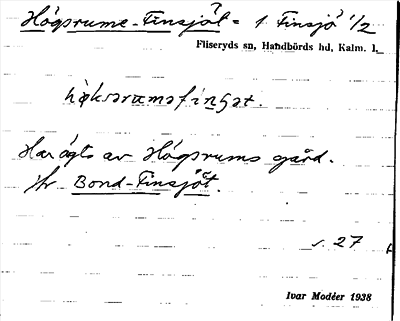 Högsrums-Finsjö = 1 Finsjö 1/2
Fliseryds sn, Handbörds hd, Kalm. l.
Har ägts av Högsrums gård.
jfr Bond-Finsjöt.
s. 27
Ivar Modéer 1938